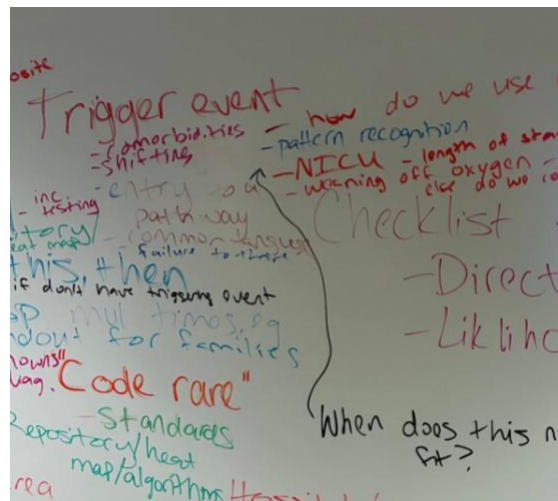 osite
Trigger event
- comorbidities
- shifting
- entry to a
pathway
- common language
failure to thrive
- inc.
testing
itory/
heat map/
this, then
if don't have triggering event
mul times, eg
ndout for families
nowns"
"Code rare"
- Standards
Repository/heat
map/algorithms
rea
- how do we use
- pattern recognition
- NICU - length of sta
- weaning off oxygen -
else do we co
Checklist
- Direct
- Likliho
When does this n
fit?